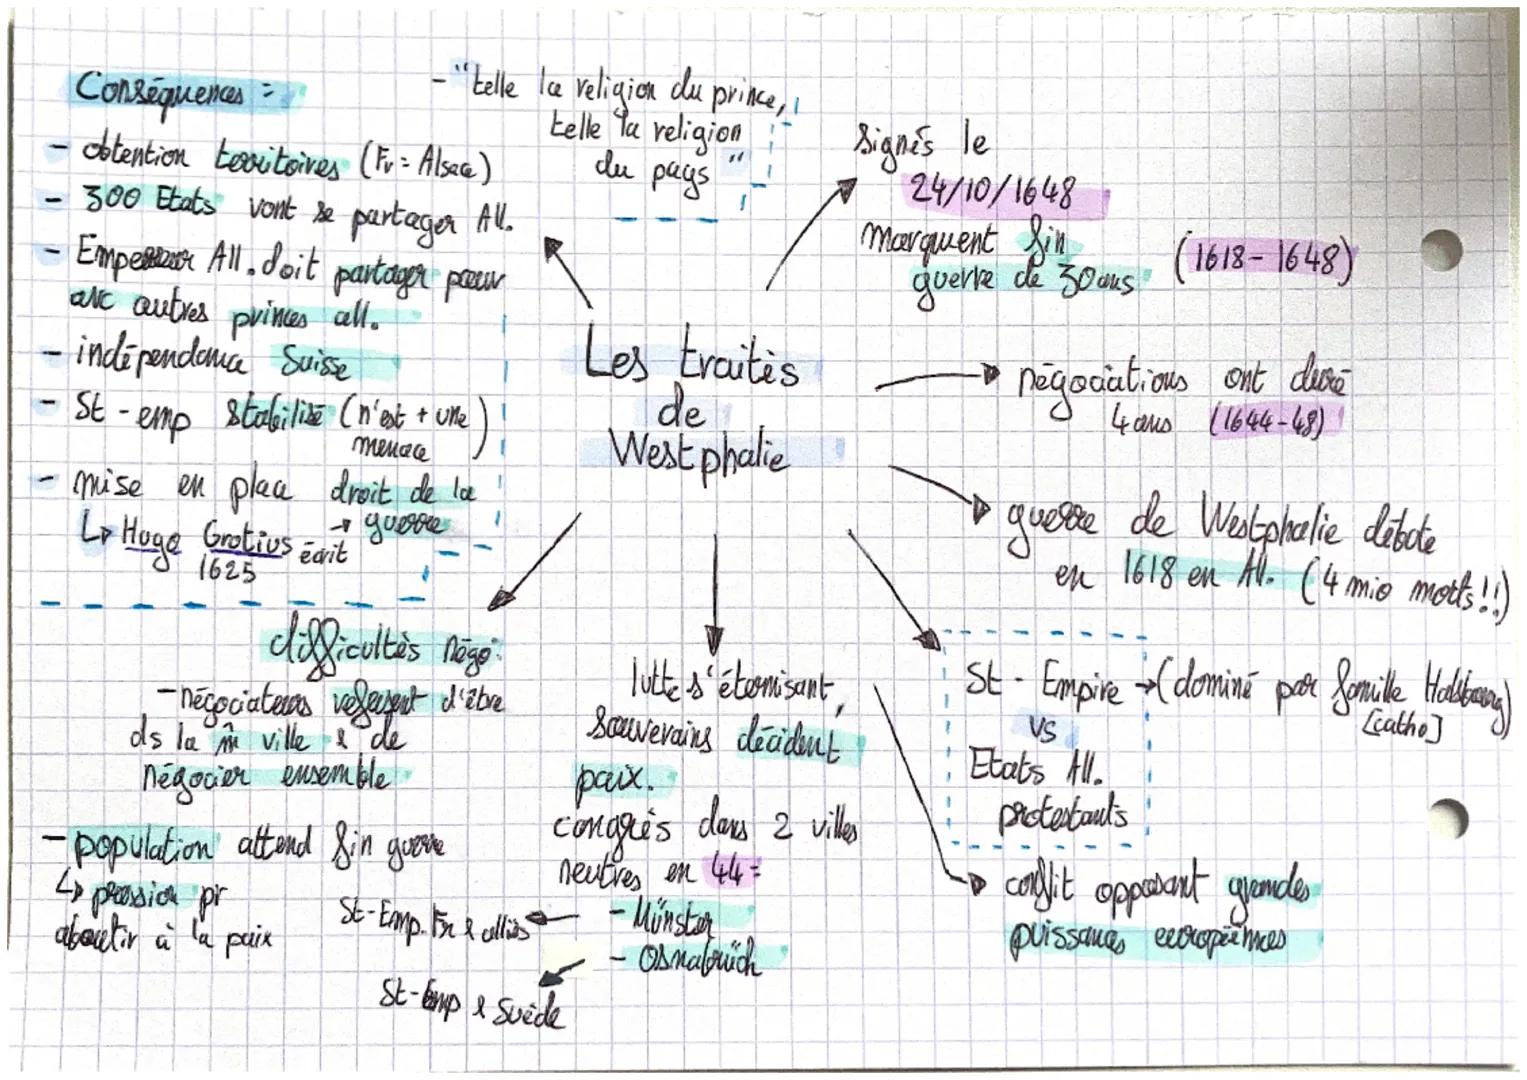 Les traités
de
Westphalie
Signés le
24/10/1648
marquent fin
guerre de 30 ans
(1618-1648)
négociations ont duré
4 ans (1644-48)
guerre de Westphalie débute
en 1618 en All. (4 mio morts!!)
St-Empire → (dominé par famille Habsbourg)
[catho]
vs
Etats All.
protestants
conflit opposant grandes
puissances européennes
lutte s'éternisant,
souverains décident
paix.
congrès dans 2 villes
neutres en 44 =
- Münster
St-Emp. Fr & alliés
- Osnabrüch
St-Emp & Suède
difficultés négo:
- négociateurs refusent d'être
ds la m̂ ville & de
négocier ensemble
- population attend fin guerre
↳ pression pr
aboutir à la paix
Conséquences :
- obtention territoires (Fr = Alsace)
- 300 Etats vont se partager All.
- Empereur All. doit partager pouvr
avc autres princes all.
- indépendance Suisse
- St-emp stabilisé (n'est + une
menace)
- mise en place droit de la
guerre
↳ Hugo Grotius écrit
1625
- "telle la religion du prince,
telle la religion
du pays"